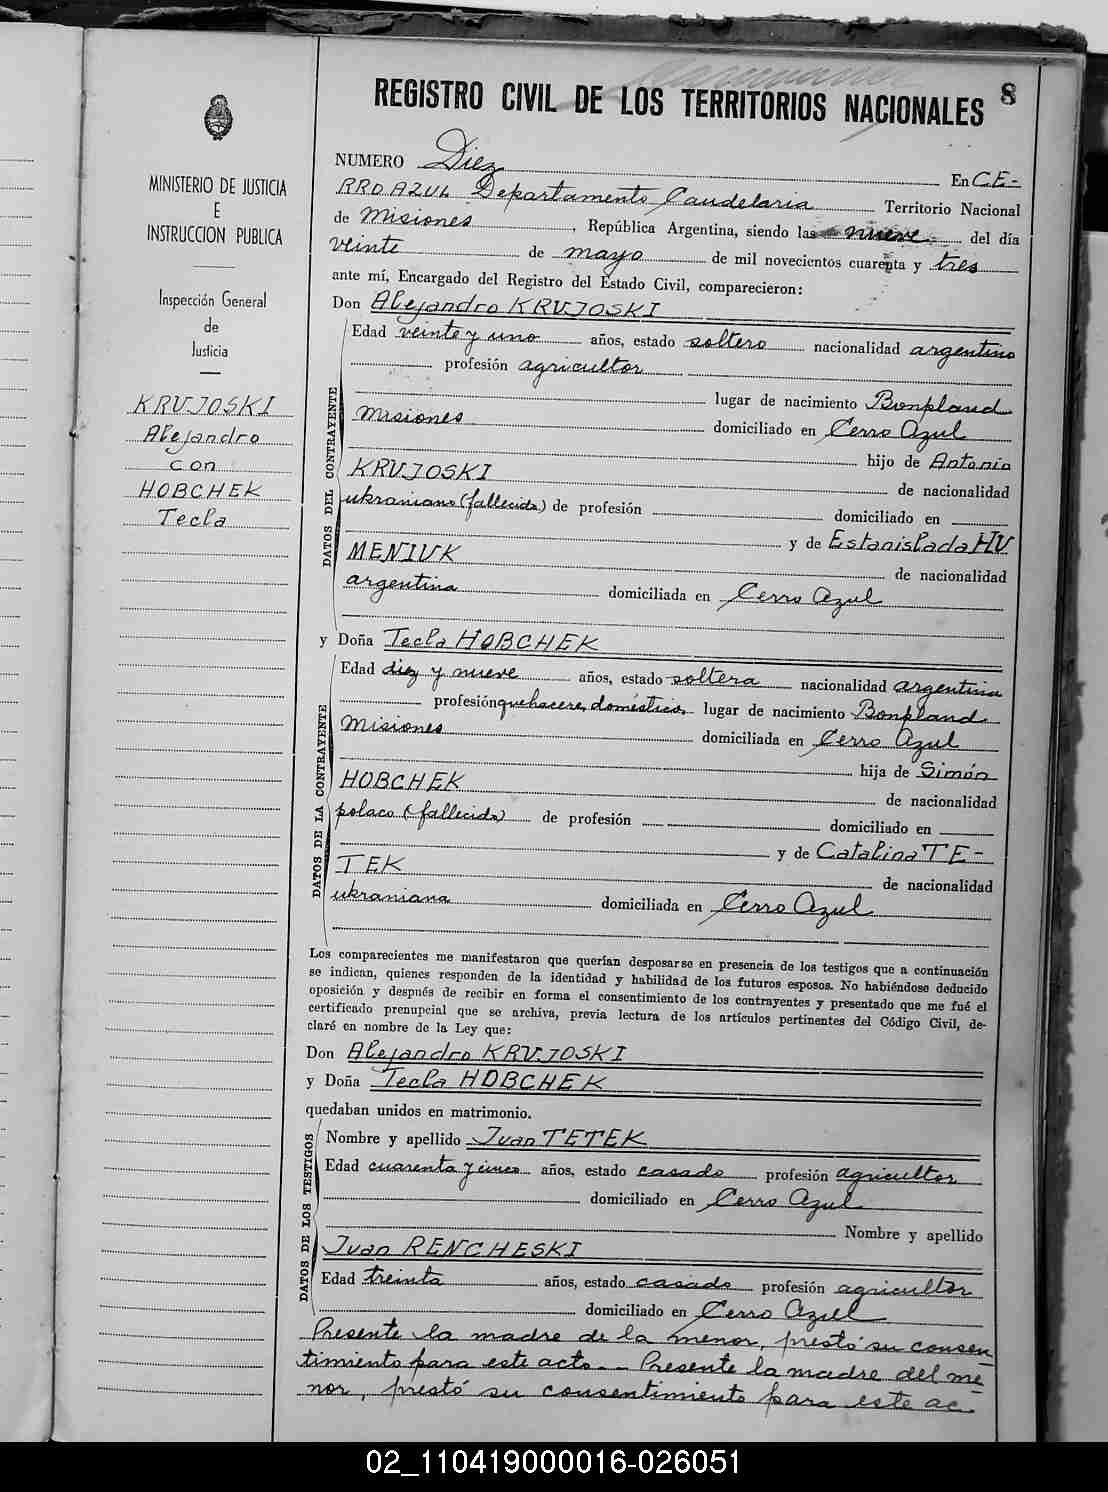 8
REGISTRO CIVIL DE LOS TERRITORIOS NACIONALES
MINISTERIO DE JUSTICIA
E
INSTRUCCION PUBLICA
Inspección General
de
Justicia
KRUJOSKI
Alejandro
con
HOBCHEK
Tecla
NUMERO Diez En CE-
RRO AZUL Departamento Candelaria Territorio Nacional
de Misiones, República Argentina, siendo las nueve del día
veinte de mayo de mil novecientos cuarenta y tres
ante mí, Encargado del Registro del Estado Civil, comparecieron:
Don Alejandro KRUJOSKI
DATOS DEL CONTRAYENTE
Edad veinte y uno años, estado soltero nacionalidad argentino
profesión agricultor
lugar de nacimiento Bonpland
Misiones domiciliado en Cerro Azul
hijo de Antonio
KRUJOSKI de nacionalidad
ukraniano (fallecido) de profesión domiciliado en
y de Estanislada HU
MENIUK de nacionalidad
argentina domiciliada en Cerro Azul
y Doña Tecla HOBCHEK
DATOS DE LA CONTRAYENTE
Edad diez y nueve años, estado soltera nacionalidad argentina
profesión quehaceres domésticos lugar de nacimiento Bonpland
Misiones domiciliada en Cerro Azul
hija de Simón
HOBCHEK de nacionalidad
polaco (fallecido) de profesión domiciliado en
y de Catalina TE-
TEK de nacionalidad
ukraniana domiciliada en Cerro Azul
Los comparecientes me manifestaron que querían desposarse en presencia de los testigos que a continuación
se indican, quienes responden de la identidad y habilidad de los futuros esposos. No habiéndose deducido
oposición y después de recibir en forma el consentimiento de los contrayentes y presentado que me fué el
certificado prenupcial que se archiva, previa lectura de los artículos pertinentes del Código Civil, de-
claré en nombre de la Ley que:
Don Alejandro KRUJOSKI
y Doña Tecla HOBCHEK
quedaban unidos en matrimonio.
DATOS DE LOS TESTIGOS
Nombre y apellido Juan TETEK
Edad cuarenta y cinco años, estado casado profesión agricultor
domiciliado en Cerro Azul
Nombre y apellido
Juan RENCHESKI
Edad treinta años, estado casado profesión agricultor
domiciliado en Cerro Azul
Presente la madre de la menor, prestó su consen-
timiento para este acto.- Presente la madre del me-
nor, prestó su consentimiento para este ac-
02_110419000016-026051